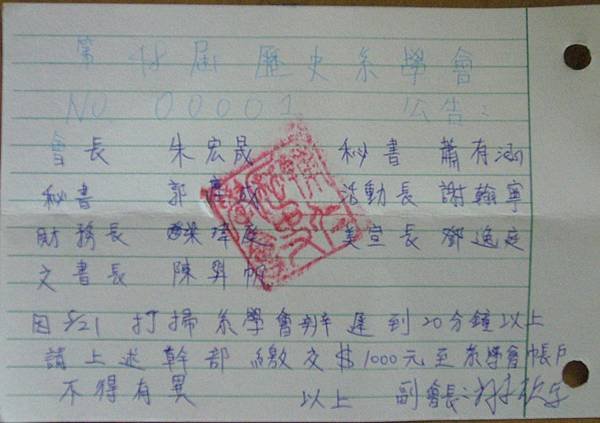 第廿屆歷史系學會
NO. 00001 公告：
會長 朱宏晟 秘書 蕭有涵
秘書 郭 活動長 謝翰寧
財務長 梁瑋庭 美宣長 鄧逸庭
文書長 陳羿帆
因5/21 打掃系學會辦遲到20分鐘以上
請上述幹部繳交$1000元至系學會帳戶
不得有異 以上 副會長：